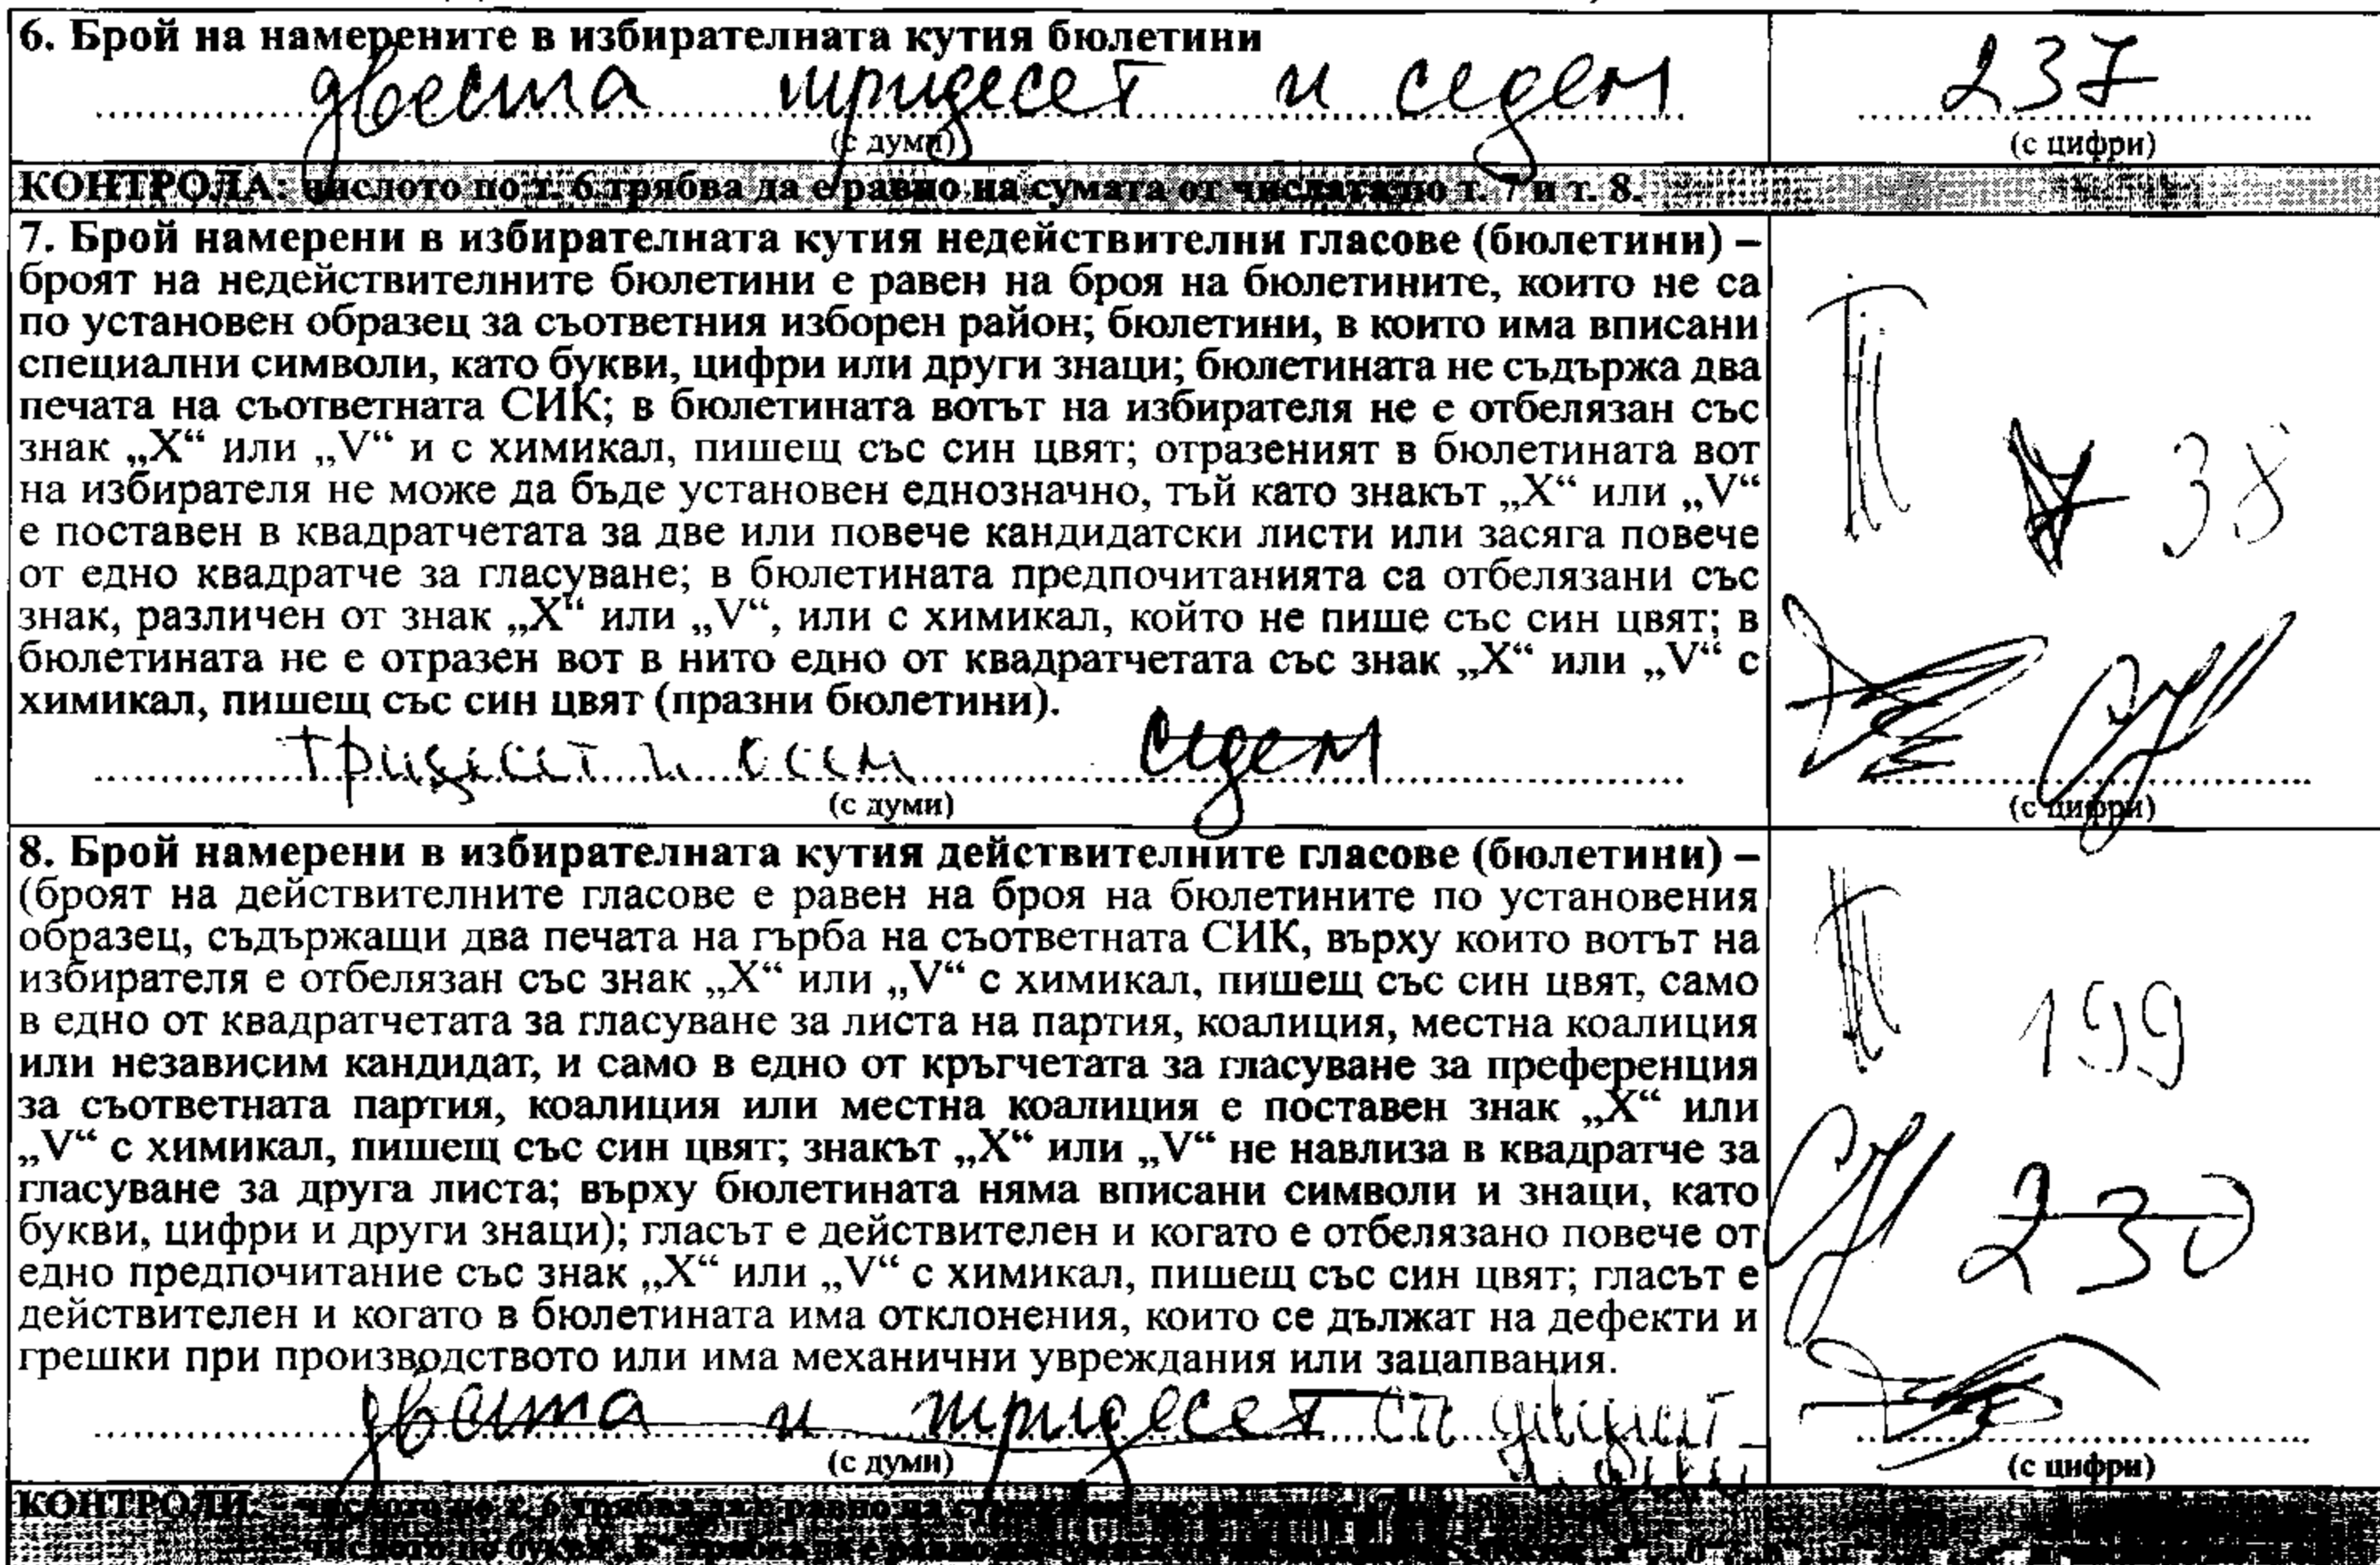 6. Брой на намерените в избирателната кутия бюлетини
двеста тридесет и седем
237
(с думи)
(с цифри)
КОНТРОЛА: числото по т. 6 трябва да е равно на сумата от числата по т. 7 и т. 8.
7. Брой намерени в избирателната кутия недействителни гласове (бюлетини) –
броят на недействителните бюлетини е равен на броя на бюлетините, които не са
по установен образец за съответния изборен район; бюлетини, в които има вписани
специални символи, като букви, цифри или други знаци; бюлетината не съдържа два
печата на съответната СИК; в бюлетината вотът на избирателя не е отбелязан със
знак „X“ или „V“ и с химикал, пишещ със син цвят; отразеният в бюлетината вот
на избирателя не може да бъде установен еднозначно, тъй като знакът „X“ или „V“
е поставен в квадратчетата за две или повече кандидатски листи или засяга повече
от едно квадратче за гласуване; в бюлетината предпочитанията са отбелязани със
знак, различен от знак „X“ или „V“, или с химикал, който не пише със син цвят; в
бюлетината не е отразен вот в нито едно от квадратчетата със знак „X“ или „V“ с
химикал, пишещ със син цвят (празни бюлетини).
38
тридесет и осем седем
(с думи)
(с цифри)
8. Брой намерени в избирателната кутия действителните гласове (бюлетини) –
(броят на действителните гласове е равен на броя на бюлетините по установения
образец, съдържащи два печата на гърба на съответната СИК, върху които вотът на
избирателя е отбелязан със знак „X“ или „V“ с химикал, пишещ със син цвят, само
в едно от квадратчетата за гласуване за листа на партия, коалиция, местна коалиция
или независим кандидат, и само в едно от кръгчетата за гласуване за преференция
за съответната партия, коалиция или местна коалиция е поставен знак „X“ или
„V“ с химикал, пишещ със син цвят; знакът „X“ или „V“ не навлиза в квадратче за
гласуване за друга листа; върху бюлетината няма вписани символи и знаци, като
букви, цифри и други знаци); гласът е действителен и когато е отбелязано повече от
едно предпочитание със знак „X“ или „V“ с химикал, пишещ със син цвят; гласът е
действителен и когато в бюлетината има отклонения, които се дължат на дефекти и
грешки при производството или има механични увреждания или зацапвания.
199
230
двеста и тридесет
(с думи)
(с цифри)
КОНТРОЛИ: – числото по т. 6 трябва да е равно на